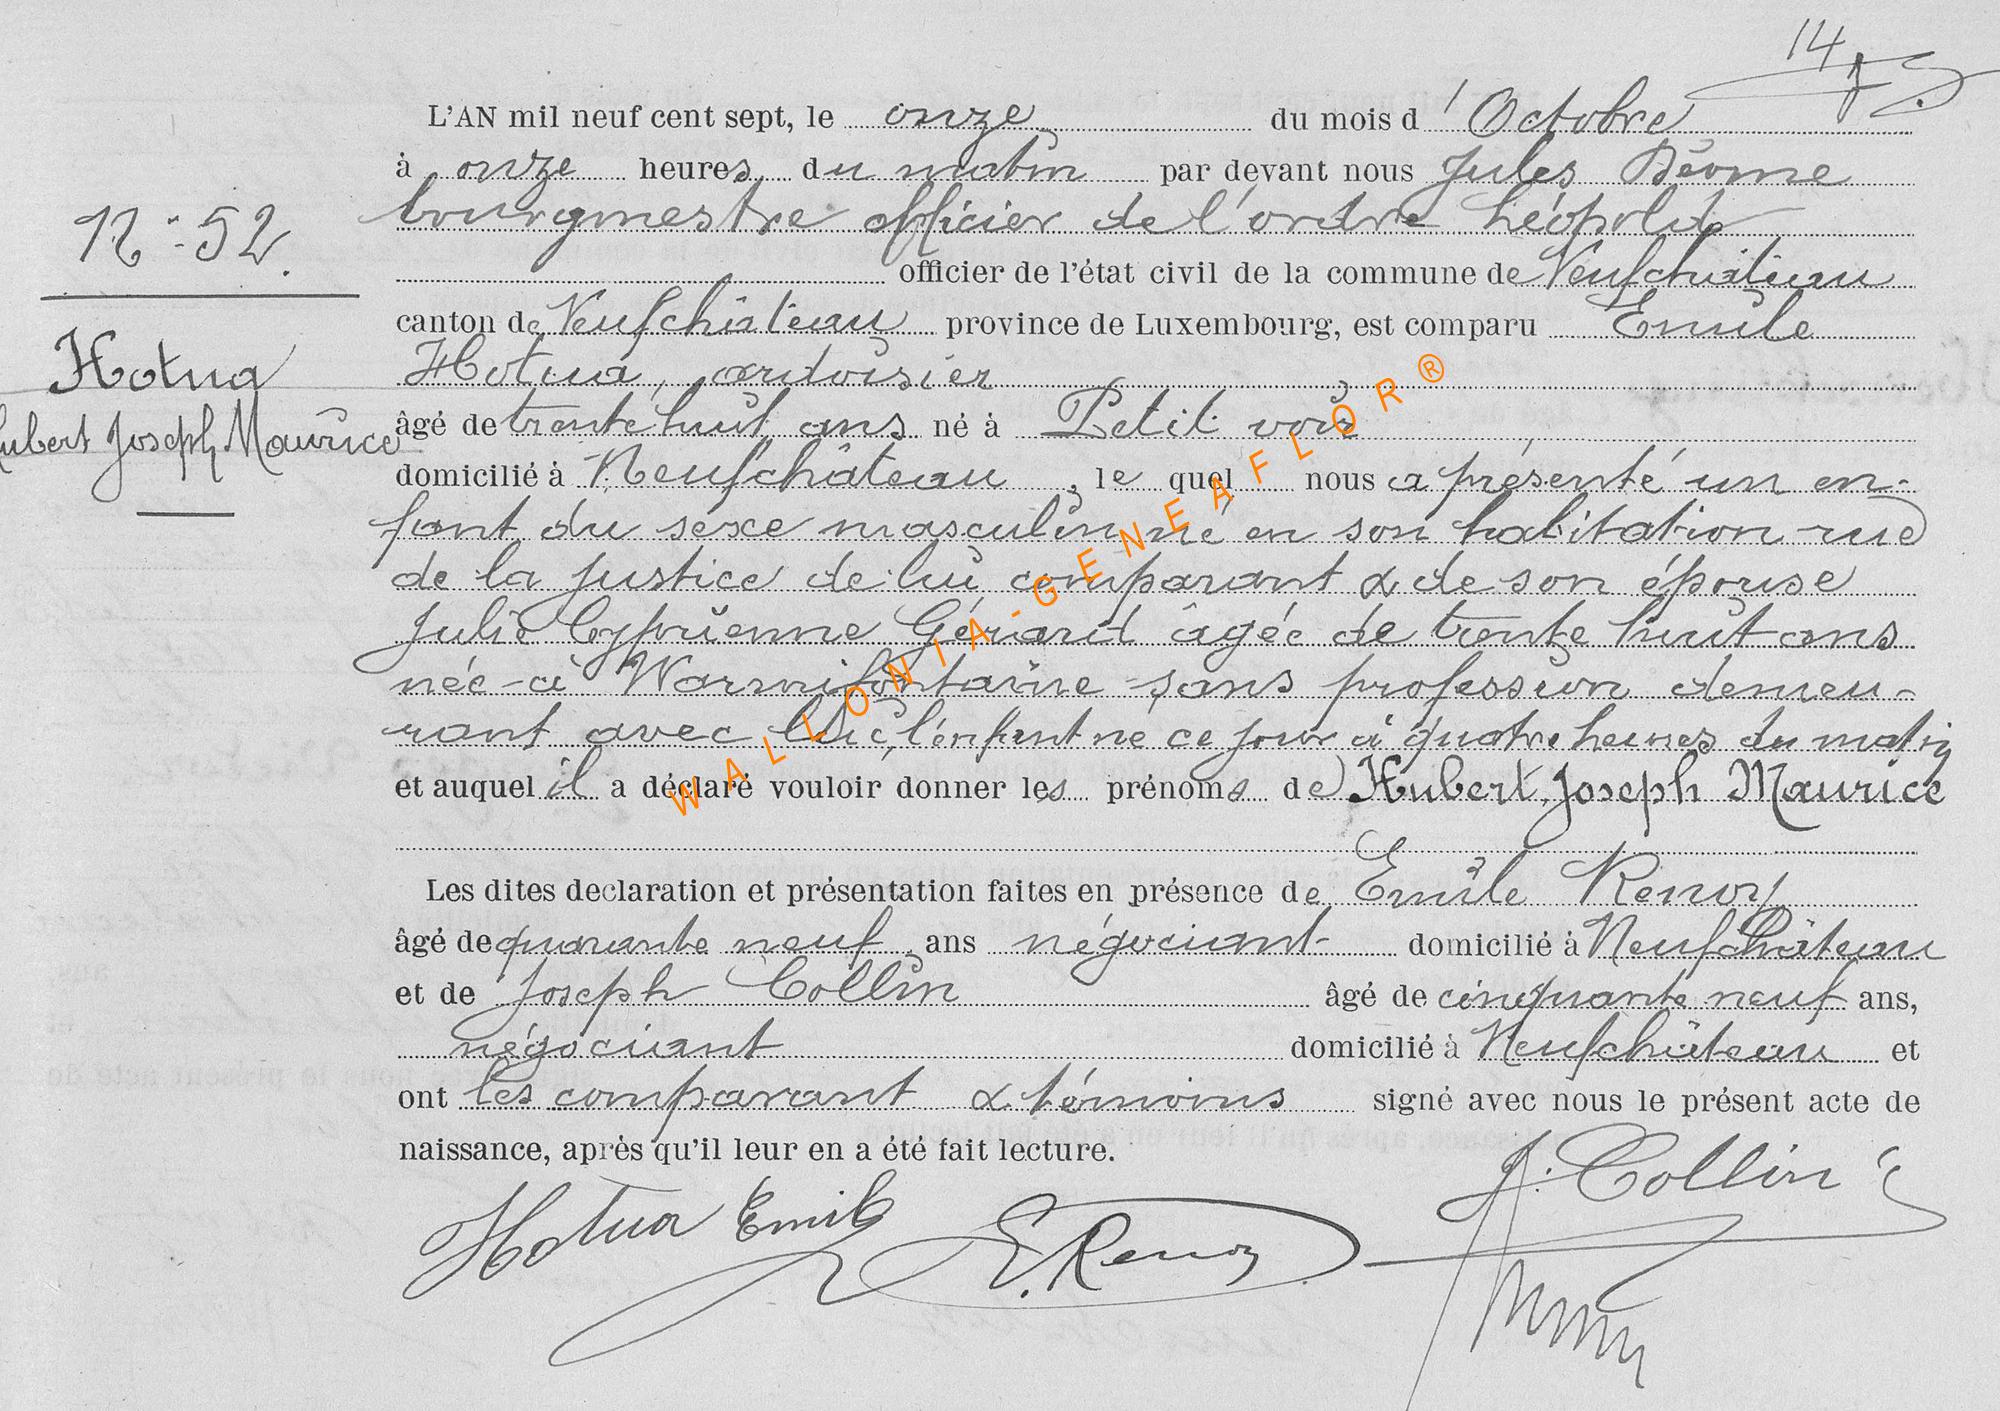 14
L'AN mil neuf cent sept, le onze du mois d'Octobre
à onze heures du matin par devant nous Jules
bourgmestre officier de l'ordre Léopold
N° 52.
officier de l'état civil de la commune de Neufchâteau
canton de Neufchâteau province de Luxembourg, est comparu Emile
Hotua, ardoisier
Hotua
Hubert Joseph Maurice
âgé de trente huit ans né à Petit voir
domicilié à Neufchâteau, le quel nous a présenté un en-
fant du sexe masculin né en son habitation rue
de la justice de lui comparant & de son épouse
Julie Cyprienne Gérard âgée de trente huit ans
née à Warmifontaine sans profession demeu-
rant avec lui, l'enfant né ce jour à quatre heures du matin
et auquel il a déclaré vouloir donner les prénoms de Hubert, Joseph Maurice
Les dites declaration et présentation faites en présence de Emile Renoy
âgé de quarante neuf ans négociant domicilié à Neufchâteau
et de Joseph Collin âgé de cinquante neuf ans,
négociant domicilié à Neufchâteau et
ont les comparant & témoins signé avec nous le présent acte de
naissance, après qu'il leur en a été fait lecture.
Hotua Emile E. Renoy J. Collin
WALLONIA-GENEAFLOR®